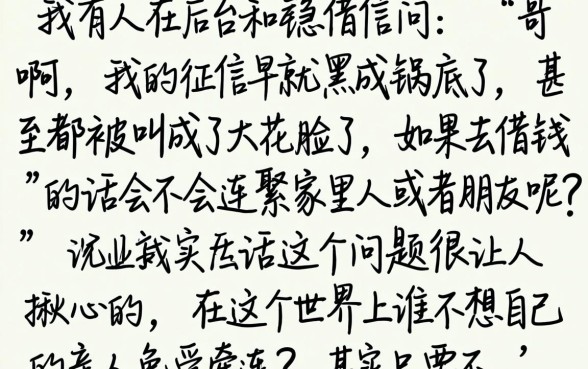 我有人在后台和稳借信问：“哥
啊，我的征信早就黑成锅底了，甚
至都被叫成了大花脸了，如果去借钱
”的话会不会连紧家里人或者朋友呢？
” 说业我实在话这个问题很让人
揪心的，在这个世界上谁不想自己
的亲人免受牵连？其实只要不